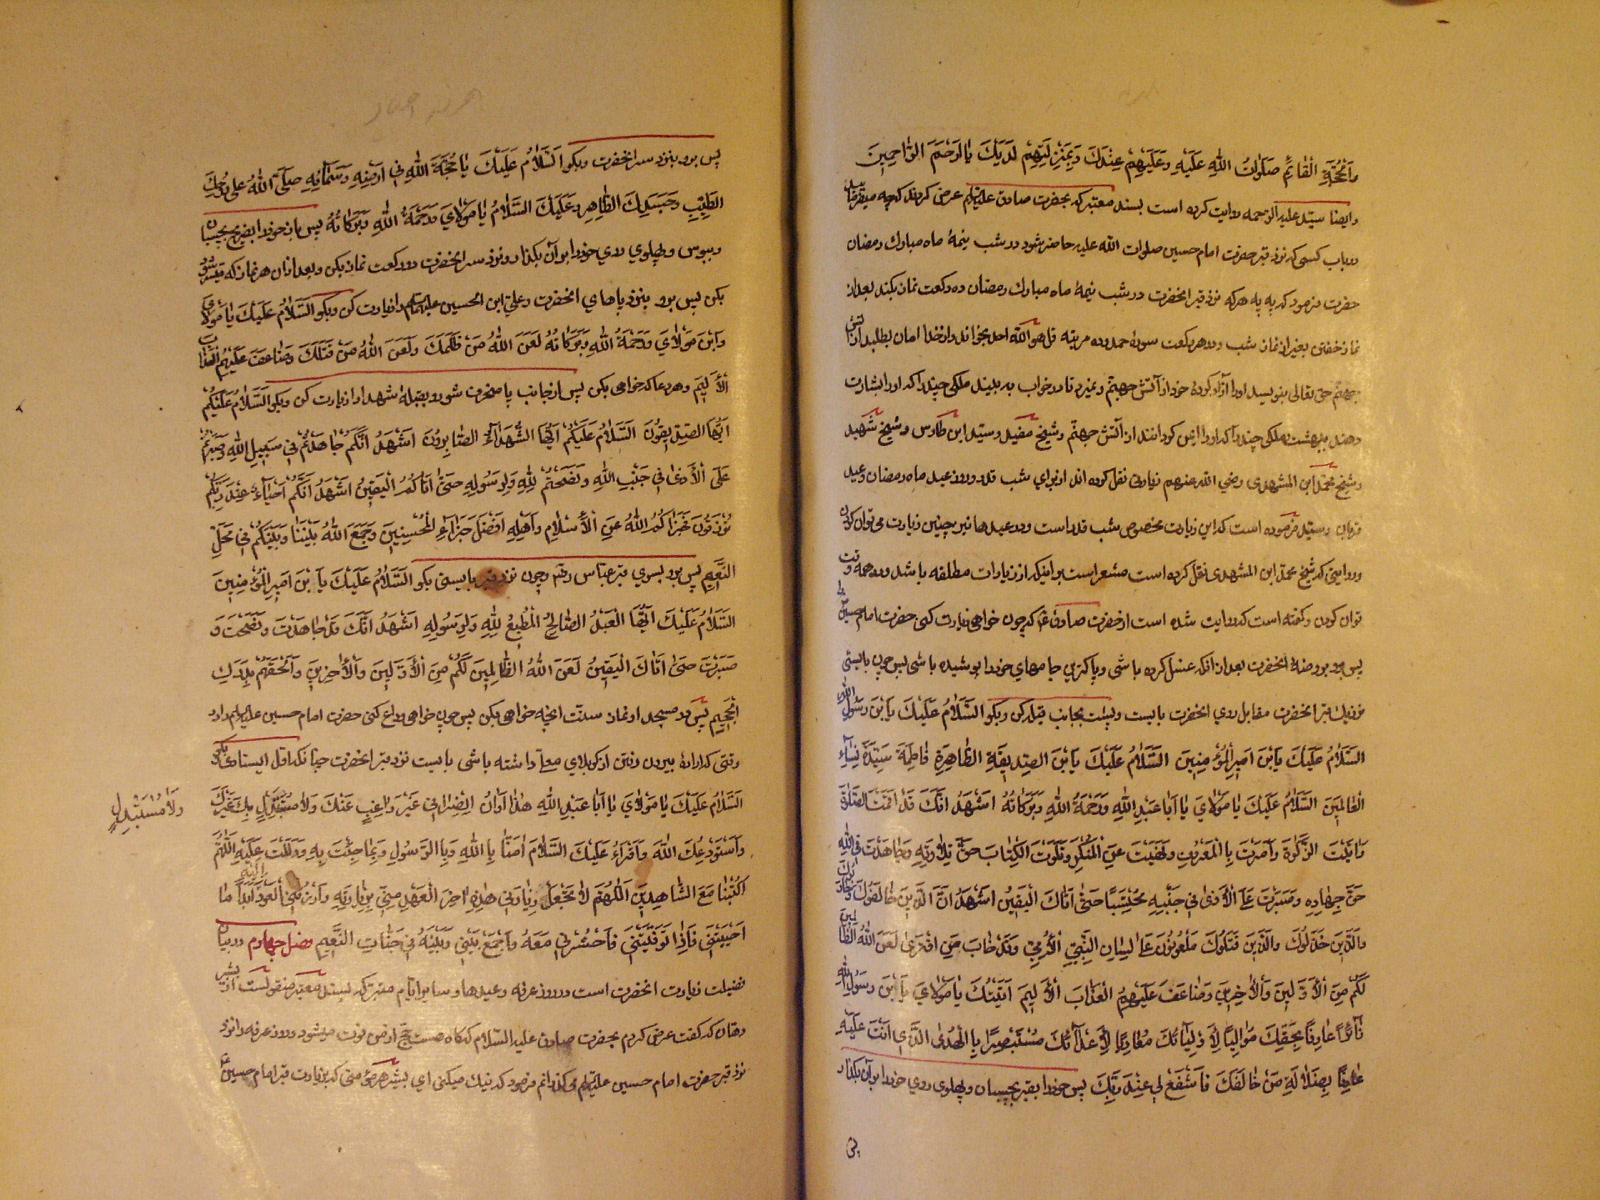 والحجة القائم صلوات الله عليه وعليهم عندك وبمنزلتهم لديك يا ارحم الراحمين
وايضا سيد عليه الرحمه روايت كرده است بسند معتبر كه بحضرت صادق عليه السلام عرض كردند كه چه ميفرمائيد
در باب كسى كه نزد قبر حضرت امام حسين صلوات الله عليه حاضر شود در شب نيمۀ ماه مبارك رمضان
حضرت فرمود كه به به هر كه نزد قبر انحضرت در شب نيمۀ ماه مبارك رمضان ده ركعت نماز بكند بعد از
نماز خفتن بغير از نماز شب و در هر ركعت سورۀ حمد و ده مرتبه قل هو الله احد بخواند و از خدا امان بطلبد از آتش
جهنم حق تعالى بنويسد او را آزاد كردۀ خود از آتش جهنم و نميرد تا در خواب به بيند ملكى چند را كه او را بشارت
دهند ببهشت و ملكى چند را كه او را ايمن گردانند از آتش جهنم و شيخ مفيد و سيد ابن طاوس و شيخ شهيد
و شيخ محمد ابن المشهدى رضي الله عنهم زيارتى نقل كرده اند از براى شب قدر و روز عيد ماه رمضان وعيد
قربان و سيد فرموده است كه اين زيارت مخصوص شب قدر است و در عيدها نيز بچنين زيارت مى توان كرد
و روايتى كه شيخ محمد ابن المشهدى نقل كرده است مشعر است بر اينكه از زيارات مطلقه باشد و در همه وقت
توان كردن و گفته است كه روايت شده است از حضرت صادق ع كه چون خواهى زيارت كنى حضرت امام حسين را
پس برو بروضۀ انحضرت بعد از آنكه غسل كرده باشى و پاكترين جامهاى خود را پوشيده باشى پس چون بايستى
نزديك قبر انحضرت مقابل روي انحضرت بايست و پشت بجانب قبله كن و بگو السلام عليك يا بن رسول الله
السلام عليك يا بن امير المؤمنين السلام عليك يا بن الصديقة الطاهرة فاطمة سيدة نساء
العالمين السلام عليك يا مولاي يا ابا عبد الله ورحمة الله وبركاته اشهد انك قد اقمت الصلوة
واتيت الزكوة وامرت بالمعروف ونهيت عن المنكر وتلوت الكتاب حق تلاوته وجاهدت في الله
حق جهاده وصبرت على الاذى في جنبه محتسبا حتى اتاك اليقين اشهد ان الذين خالفوك وحاربوك
والذين خذلوك والذين قتلوك ملعونون على لسان النبي الامي وقد خاب من افترى لعن الله الظالمين
لكم من الاولين والاخرين وضاعف عليهم العذاب الاليم اتيتك يا مولاي يا بن رسول الله
زائرا عارفا بحقك مواليا لاوليائك معاديا لاعدائك مستبصرا بالهدى الذي انت عليه
عارفا بضلالة من خالفك فاشفع لي عند ربك پس خود را بقبر بچسبان و پهلوى روي خود را بر آن بگذار
پس برو بنزد سر انحضرت و بگو السلام عليك يا حجة الله في ارضه وسمائه صلى الله على روحك
الطيب وجسدك الطاهر وعليك السلام يا مولاي ورحمة الله وبركاته پس باز خود را بضريح بچسبان
و ببوس و پهلوى روي خود را بر آن بگذار و نزد سر انحضرت دو ركعت نماز بكن و بعد از آن هر نماز كه ميسر شود
بكن پس برو بنزد پاهاى انحضرت وعلي ابن الحسين عليهما السلام را زيارت كن و بگو السلام عليك يا مولاي
وابن مولاي ورحمة الله وبركاته لعن الله من ظلمك ولعن الله من قتلك وضاعف عليهم العذاب
الاليم وهر دعا كه خواهى بكن پس از جانب پا منحرف شو رو بقبله شهدا را زيارت كن و بگو السلام عليكم
ايها الصديقون السلام عليكم ايها الشهداء الصابرون اشهد انكم جاهدتم في سبيل الله وصبرتم
على الاذى في جنب الله ونصحتم لله ولرسوله حتى اتاكم اليقين اشهد انكم احياء عند ربكم
ترزقون فجزاكم الله عن الاسلام واهله افضل جزاء المحسنين وجمع الله بيننا وبينكم في محل
النعيم پس برو بسوي قبر عباس رضه و چون نزد قبر بايستى بگو السلام عليك يا بن امير المؤمنين
السلام عليك ايها العبد الصالح المطيع لله ولرسوله اشهد انك قد جاهدت ونصحت و
صبرت حتى اتاك اليقين لعن الله الظالمين لكم من الاولين والاخرين والحقهم بدرك
الجحيم پس در مسجد او نماز سنت انچه خواهى بكن پس چون خواهى وداع كنى حضرت امام حسين عليه السلام را در
وقتى كه ارادۀ بيرون رفتن از كربلاى معلا داشته باشى بايست نزد قبر انحضرت چنانكه اول ايستادى و بگو
السلام عليك يا مولاي يا ابا عبد الله هذا اوان انصرافي غير راغب عنك ولا مستبدل بك غيرك
ولا مستبدل
واستودعك الله واقراء عليك السلام امنا بالله وبالرسول وبما جئت به ودللت عليه اللهم
اكتبنا مع الشاهدين اللهم لا تجعل زيارتي هذه اخر العهد مني بزيارته وارزقني العود ابدا ما
احييتني فاذا توفيتني فاحشرني معه واجمع بيني وبينه في جنات النعيم فصل چهارم در بيان
فضيلت زيارت انحضرت است در روز عرفه و عيدها و ساير ايام متبركه بسند معتبر منقولست از بشير
دهان كه گفت عرض كردم بحضرت صادق عليه السلام كه گاه هست حج از من فوت ميشود و روز عرفه را نزد
نزد قبر حضرت امام حسين عليه السلام مى گذرانم فرمود كه نيك ميكنى اى بشير هر مؤمنى كه بزيارت قبر امام حسين ع